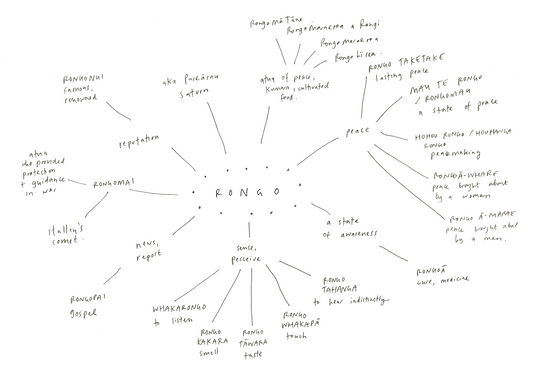 Rongo Mā Tāne
Rongo Maraeroa a Rangi
Rongo Maraeroa
Rongo hīrea
atua of peace,
kumara, cultivated
food.
RONGO TAKETAKE
lasting peace
MAU TE RONGO
/ RONGOMAU
a state of peace
peace
HOHOU RONGO / HOUHANGA
RONGO
peacemaking
RONGOĀ-WHARE
peace brought about
by a woman
RONGO Ā-MARAE
peace brought about
by a man.
a state
of awareness
RONGOĀ
cure, medicine
sense,
perceive
RONGO
TAHANGA
to hear indistinctly
RONGO
WHAKAPĀ
touch
RONGO
TĀWARA
taste
RONGO
KAKARA
smell
WHAKARONGO
to listen
news,
report
RONGOPAI
gospel
RONGOMAI
atua
who provided
protection
+ guidance
in war
Halley's
comet.
reputation
RONGONUI
famous,
renowned
aka
Saturn
RONGO